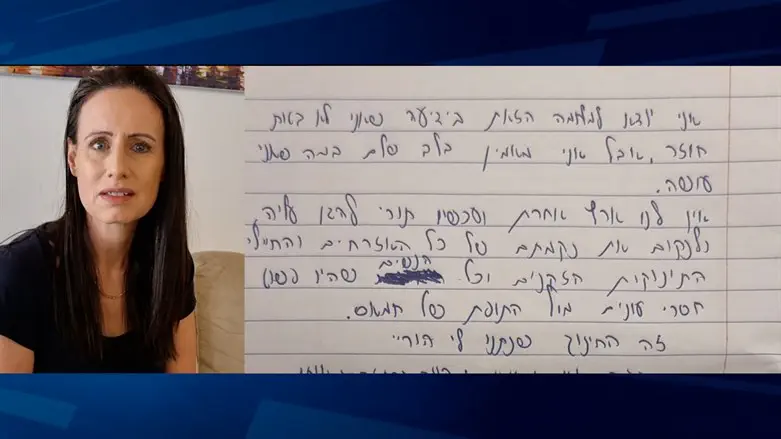 אני יוצא למלחמה הזאת בידיעה שאני לא בטוח
חוזר, אבל אני מאמין בלב שלם במה שאני
עושה.
אין לנו ארץ אחרת ועכשיו תורי להגן עליה
ולנקום את נקמתם של כל האזרחים והחיילי
התינוקות הזקנים וכל הנשים שהיו פשוט
חסרי עונים מול התופת של חמאס.
זה החינוך שנתנו לי הוריי